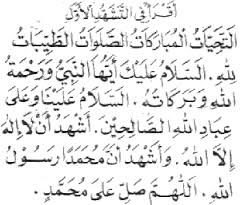 أقرأ في التشهد الأول
التَّحِيَّاتُ الْمُبَارَكَاتُ الصَّلَوَاتُ الطَّيِّبَاتُ
لِلّٰهِ. اَلسَّلَامُ عَلَيْكَ أَيُّهَا النَّبِيُّ وَرَحْمَةُ
اللهِ وَبَرَكَاتُهُ. اَلسَّلَامُ عَلَيْنَا وَعَلَى
عِبَادِ اللهِ الصَّالِحِيْنَ. أَشْهَدُ أَنْ لَا إِلٰهَ
إِلَّا اللهُ. وَأَشْهَدُ أَنَّ مُحَمَّدًا رَسُوْلُ
اللهِ. اَللّٰهُمَّ صَلِّ عَلَى مُحَمَّدٍ.